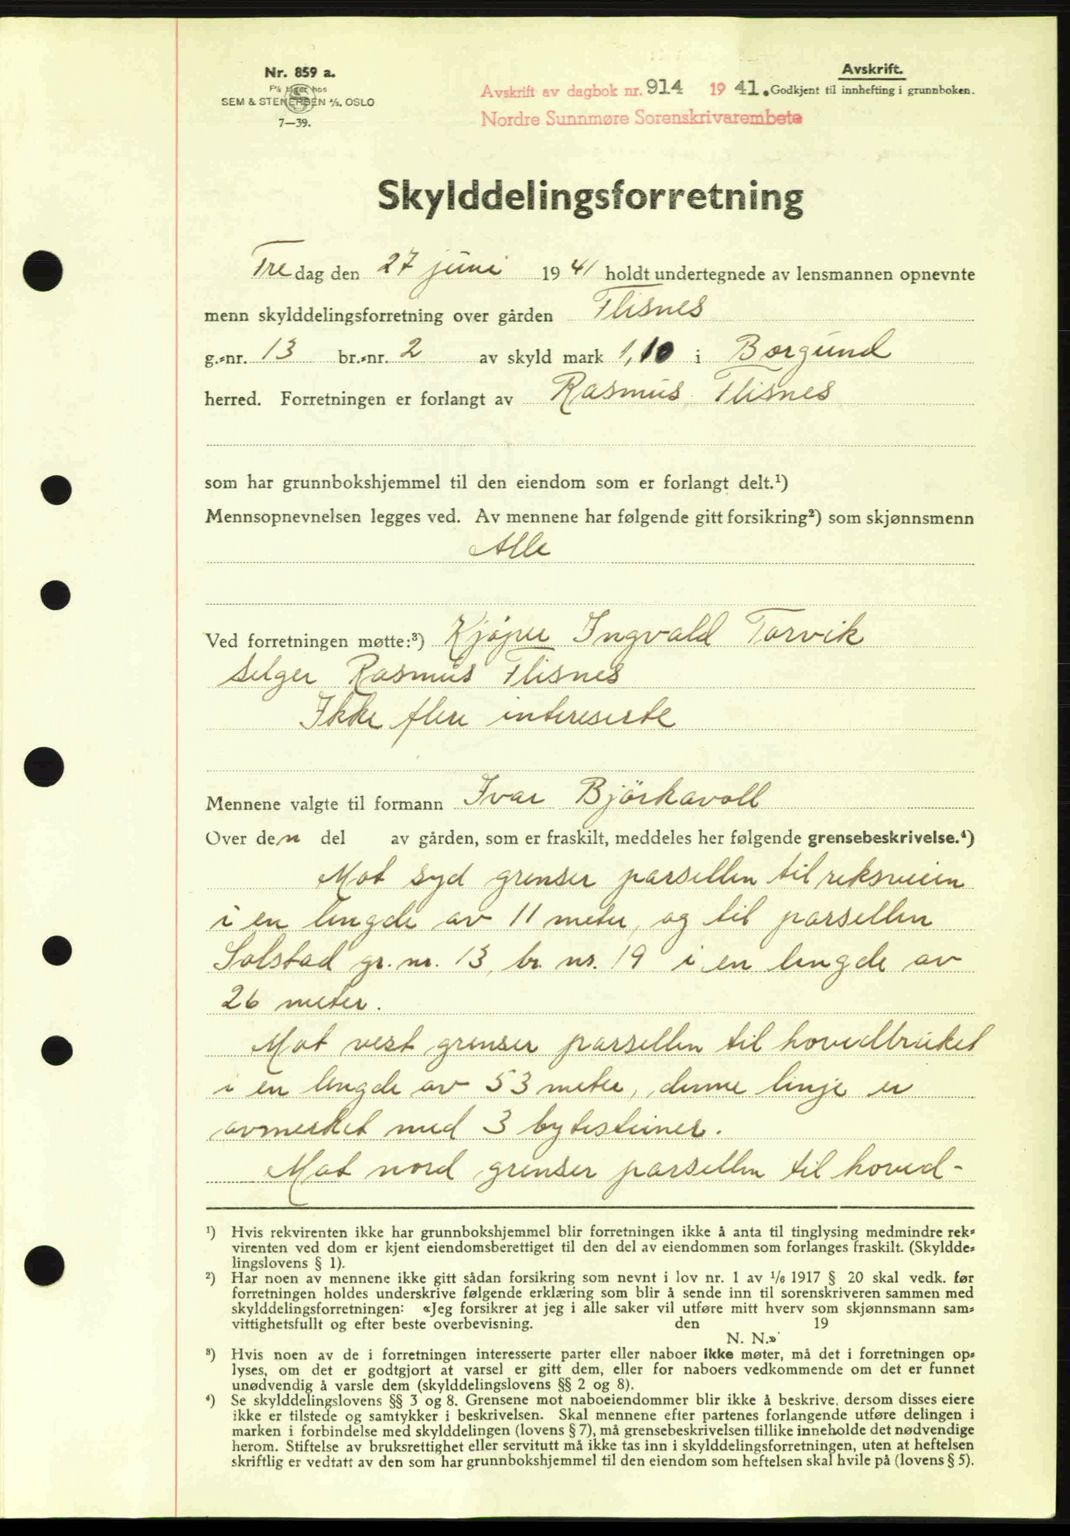 Nr. 859 a.
På lager hos
SEM & STENERSEN A/S. OSLO
7—39.
Avskrift.
Avskrift av dagbok nr. 914 1941. Godkjent til innhefting i grunnboken.
Nordre Sunnmøre Sorenskrivarembete
Skylddelingsforretning
Fredag den 27 juni 1941 holdt undertegnede av lensmannen opnevnte
menn skylddelingsforretning over gården Flisnes
g.-nr. 13 br.-nr. 2 av skyld mark 1,10 i Borgund
herred. Forretningen er forlangt av Rasmus Flisnes
som har grunnbokshjemmel til den eiendom som er forlangt delt.¹)
Mennsopnevnelsen legges ved. Av mennene har følgende gitt forsikring²) som skjønnsmenn
Alle
Ved forretningen møtte:³) Kjøper Ingvald Torvik
Selger Rasmus Flisnes
Ikke flere intereserte
Mennene valgte til formann Ivar Björkavoll
Over den del av gården, som er fraskilt, meddeles her følgende grensebeskrivelse.⁴)
Mot syd grenser parsellen til reksveien
i en lengde av 11 meter, og til parsellen
Solstad gr. nr. 13, br. nr. 19 i en lengde av
26 meter.
Mot vest grenser parsellen til hovedbruket
i en lengde av 53 meter, denne linje er
avmerket med 3 bytesteiner.
Mot nord grenser parsellen til hoved-
¹) Hvis rekvirenten ikke har grunnbokshjemmel blir forretningen ikke å anta til tinglysing medmindre rek-
virenten ved dom er kjent eiendomsberettiget til den del av eiendommen som forlanges fraskilt. (Skyldde-
lingslovens § 1).
²) Har noen av mennene ikke gitt sådan forsikring som nevnt i lov nr. 1 av 1/6 1917 § 20 skal vedk. før
forretningen holdes underskrive følgende erklæring som blir å sende inn til sorenskriveren sammen med
skylddelingsforretningen: «Jeg forsikrer at jeg i alle saker vil utføre mitt hverv som skjønnsmann sam-
vittighetsfullt og efter beste overbevisning. den 19
N. N.»
³) Hvis noen av de i forretningen interesserte parter eller naboer ikke møter, må det i forretningen op-
lyses, om det er godtgjort at varsel er gitt dem, eller for naboers vedkommende om det er funnet
unødvendig å varsle dem (skylddelingslovens §§ 2 og 8).
⁴) Se skylddelingslovens §§ 3 og 8. Grensene mot naboeiendommer blir ikke å beskrive, dersom disses eiere
ikke er tilstede og samtykker i beskrivelsen. Skal mennene efter partenes forlangende utføre delingen i
marken i forbindelse med skylddelingen (lovens § 7), må grensebeskrivelsen tillike inneholde det nødvendige
herom. Stiftelse av bruksrettighet eller servitutt må ikke tas inn i skylddelingsforretningen, uten at heftelsen
skriftlig er vedtatt av den som har grunnbokshjemmel til den eiendom som heftelsen skal hvile på (lovens § 5).